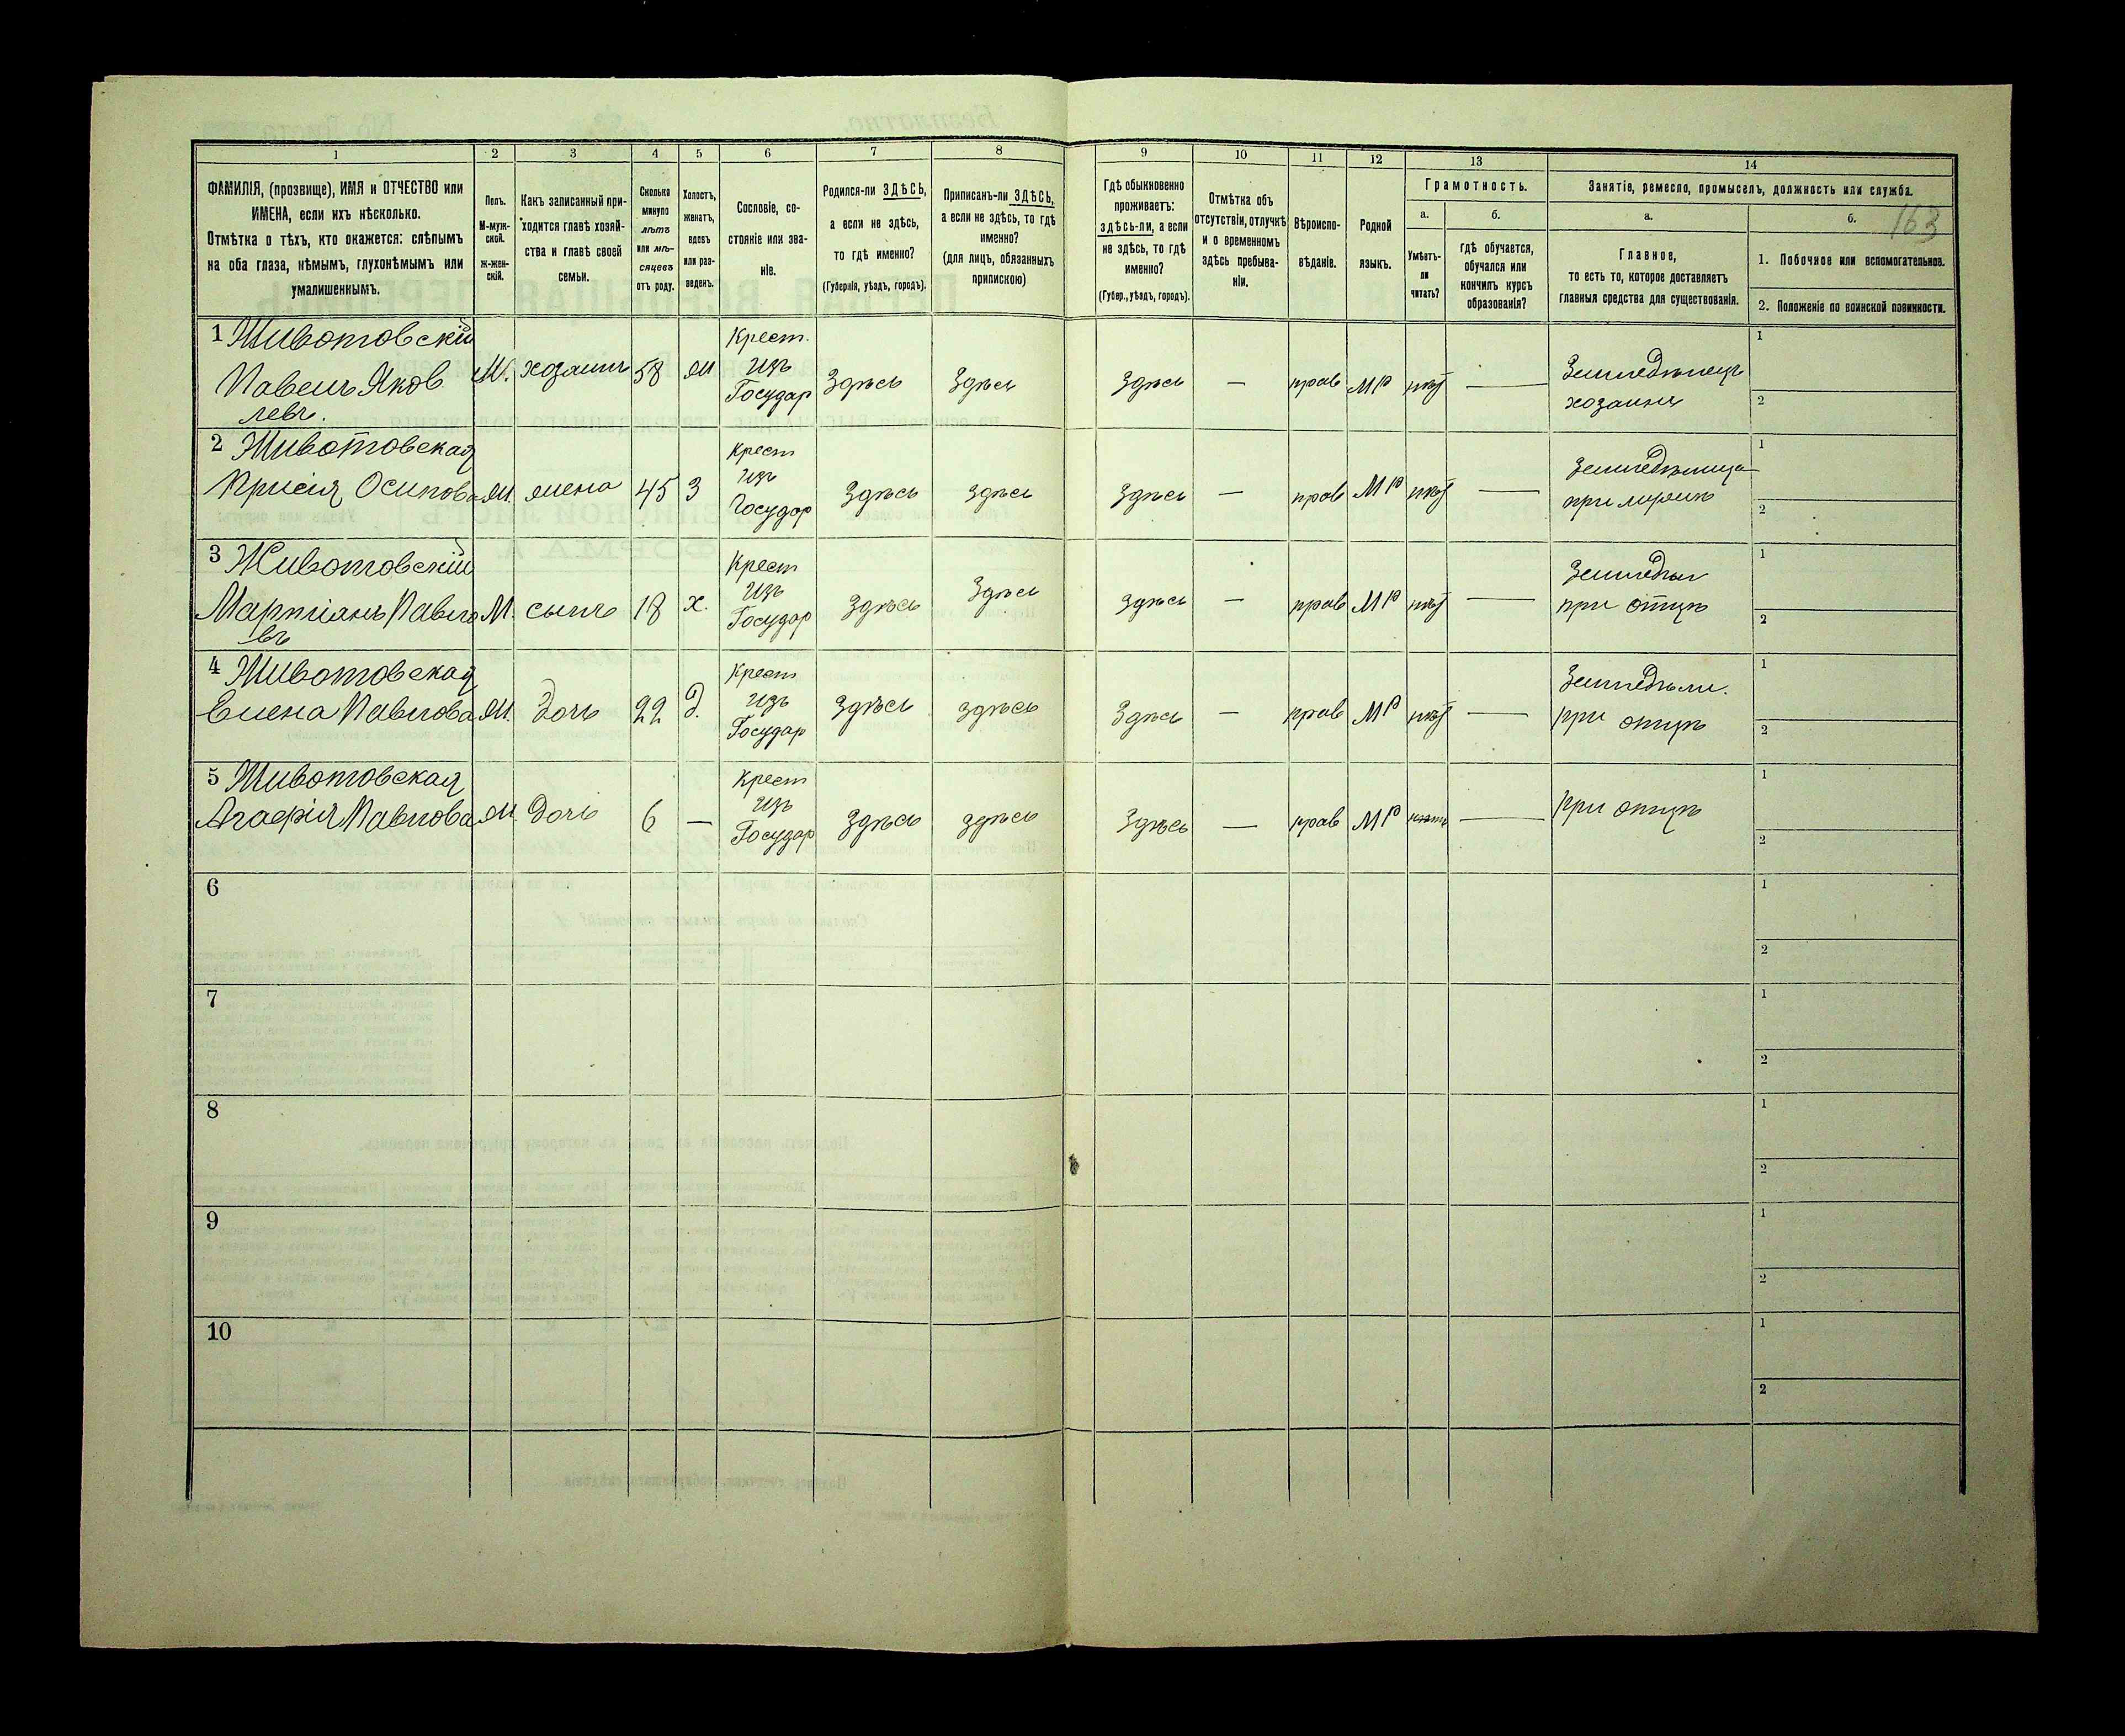 1 2 3 4 5 6 7 8 9 10 11 12 13 14
ФАМИЛІЯ, (прозвище), ИМЯ и ОТЧЕСТВО или
ИМЕНА, если ихъ нѣсколько.
Отмѣтка о тѣхъ, кто окажется: слѣпымъ
на оба глаза, нѣмымъ, глухонѣмымъ или
умалишеннымъ.
Полъ.
М-муж-
ской.
ж-жен-
скій.
Какъ записанный при-
ходится главѣ хозяй-
ства и главѣ своей
семьи.
Сколько
минуло
лѣтъ
или мѣ-
сяцевъ
отъ роду.
Холостъ,
женатъ,
вдовъ
или раз-
веденъ.
Сословіе, со-
стояніе или зва-
ніе.
Родился-ли ЗДѢСЬ,
а если не здѣсь,
то гдѣ именно?
(Губернія, уѣздъ, городъ).
Приписанъ-ли ЗДѢСЬ,
а если не здѣсь, то гдѣ
именно?
(для лицъ, обязанныхъ
припискою)
Гдѣ обыкновенно
проживаетъ:
здѣсь-ли, а если
не здѣсь, то гдѣ
именно?
(Губер., уѣздъ, городъ).
Отмѣтка объ
отсутствіи, отлучкѣ
и о временномъ
здѣсь пребыва-
ніи.
Вѣроиспо-
вѣданіе.
Родной
языкъ.
Грамотность.
а.
Умѣетъ-
ли
читать?
б.
гдѣ обучается,
обучался или
кончилъ курсъ
образованія?
Занятіе, ремесло, промыселъ, должность или служба.
а.
Главное,
то есть то, которое доставляетъ
главныя средства для существованія.
б. 163
1. Побочное или вспомогательное.
2. Положеніе по воинской повинности.
1 Животовскій
Павелъ Яков
левъ.
М. хозяинъ 58 ж
Крест.
изъ
Государ
Здѣсь Здѣсь Здѣсь — прав МР нѣт —
Земледѣлецъ
хозяинъ
1
2
2 Животовская
Крисія Осипова
ж. жена 45 З
Крест
изъ
Государ
Здѣсь здѣсь Здѣсь — прав МР нѣт —
Земледѣлица
при
1
2
3 Животовскій
Мартіанъ Павло
въ
М. сынъ 18 х.
Крест
Изъ
Государ
Здѣсь Здѣсь здѣсь — прав МР нѣт —
Земледѣл
при отцѣ
1
2
4 Животовская
Елена Павлова
ж. Дочь 22 д.
Крест
изъ
Государ
Здѣсь здѣсь Здѣсь — прав МР нѣт —
Земледѣли.
при отцѣ
1
2
5 Животовская
Агафія Павлова
ж. Дочь 6 —
Крест
изъ
Государ
Здѣсь здѣсь Здѣсь — прав МР нѣтъ —
при отцѣ
1
2
6
1
2
7
1
2
8
1
2
9
1
2
10
1
2